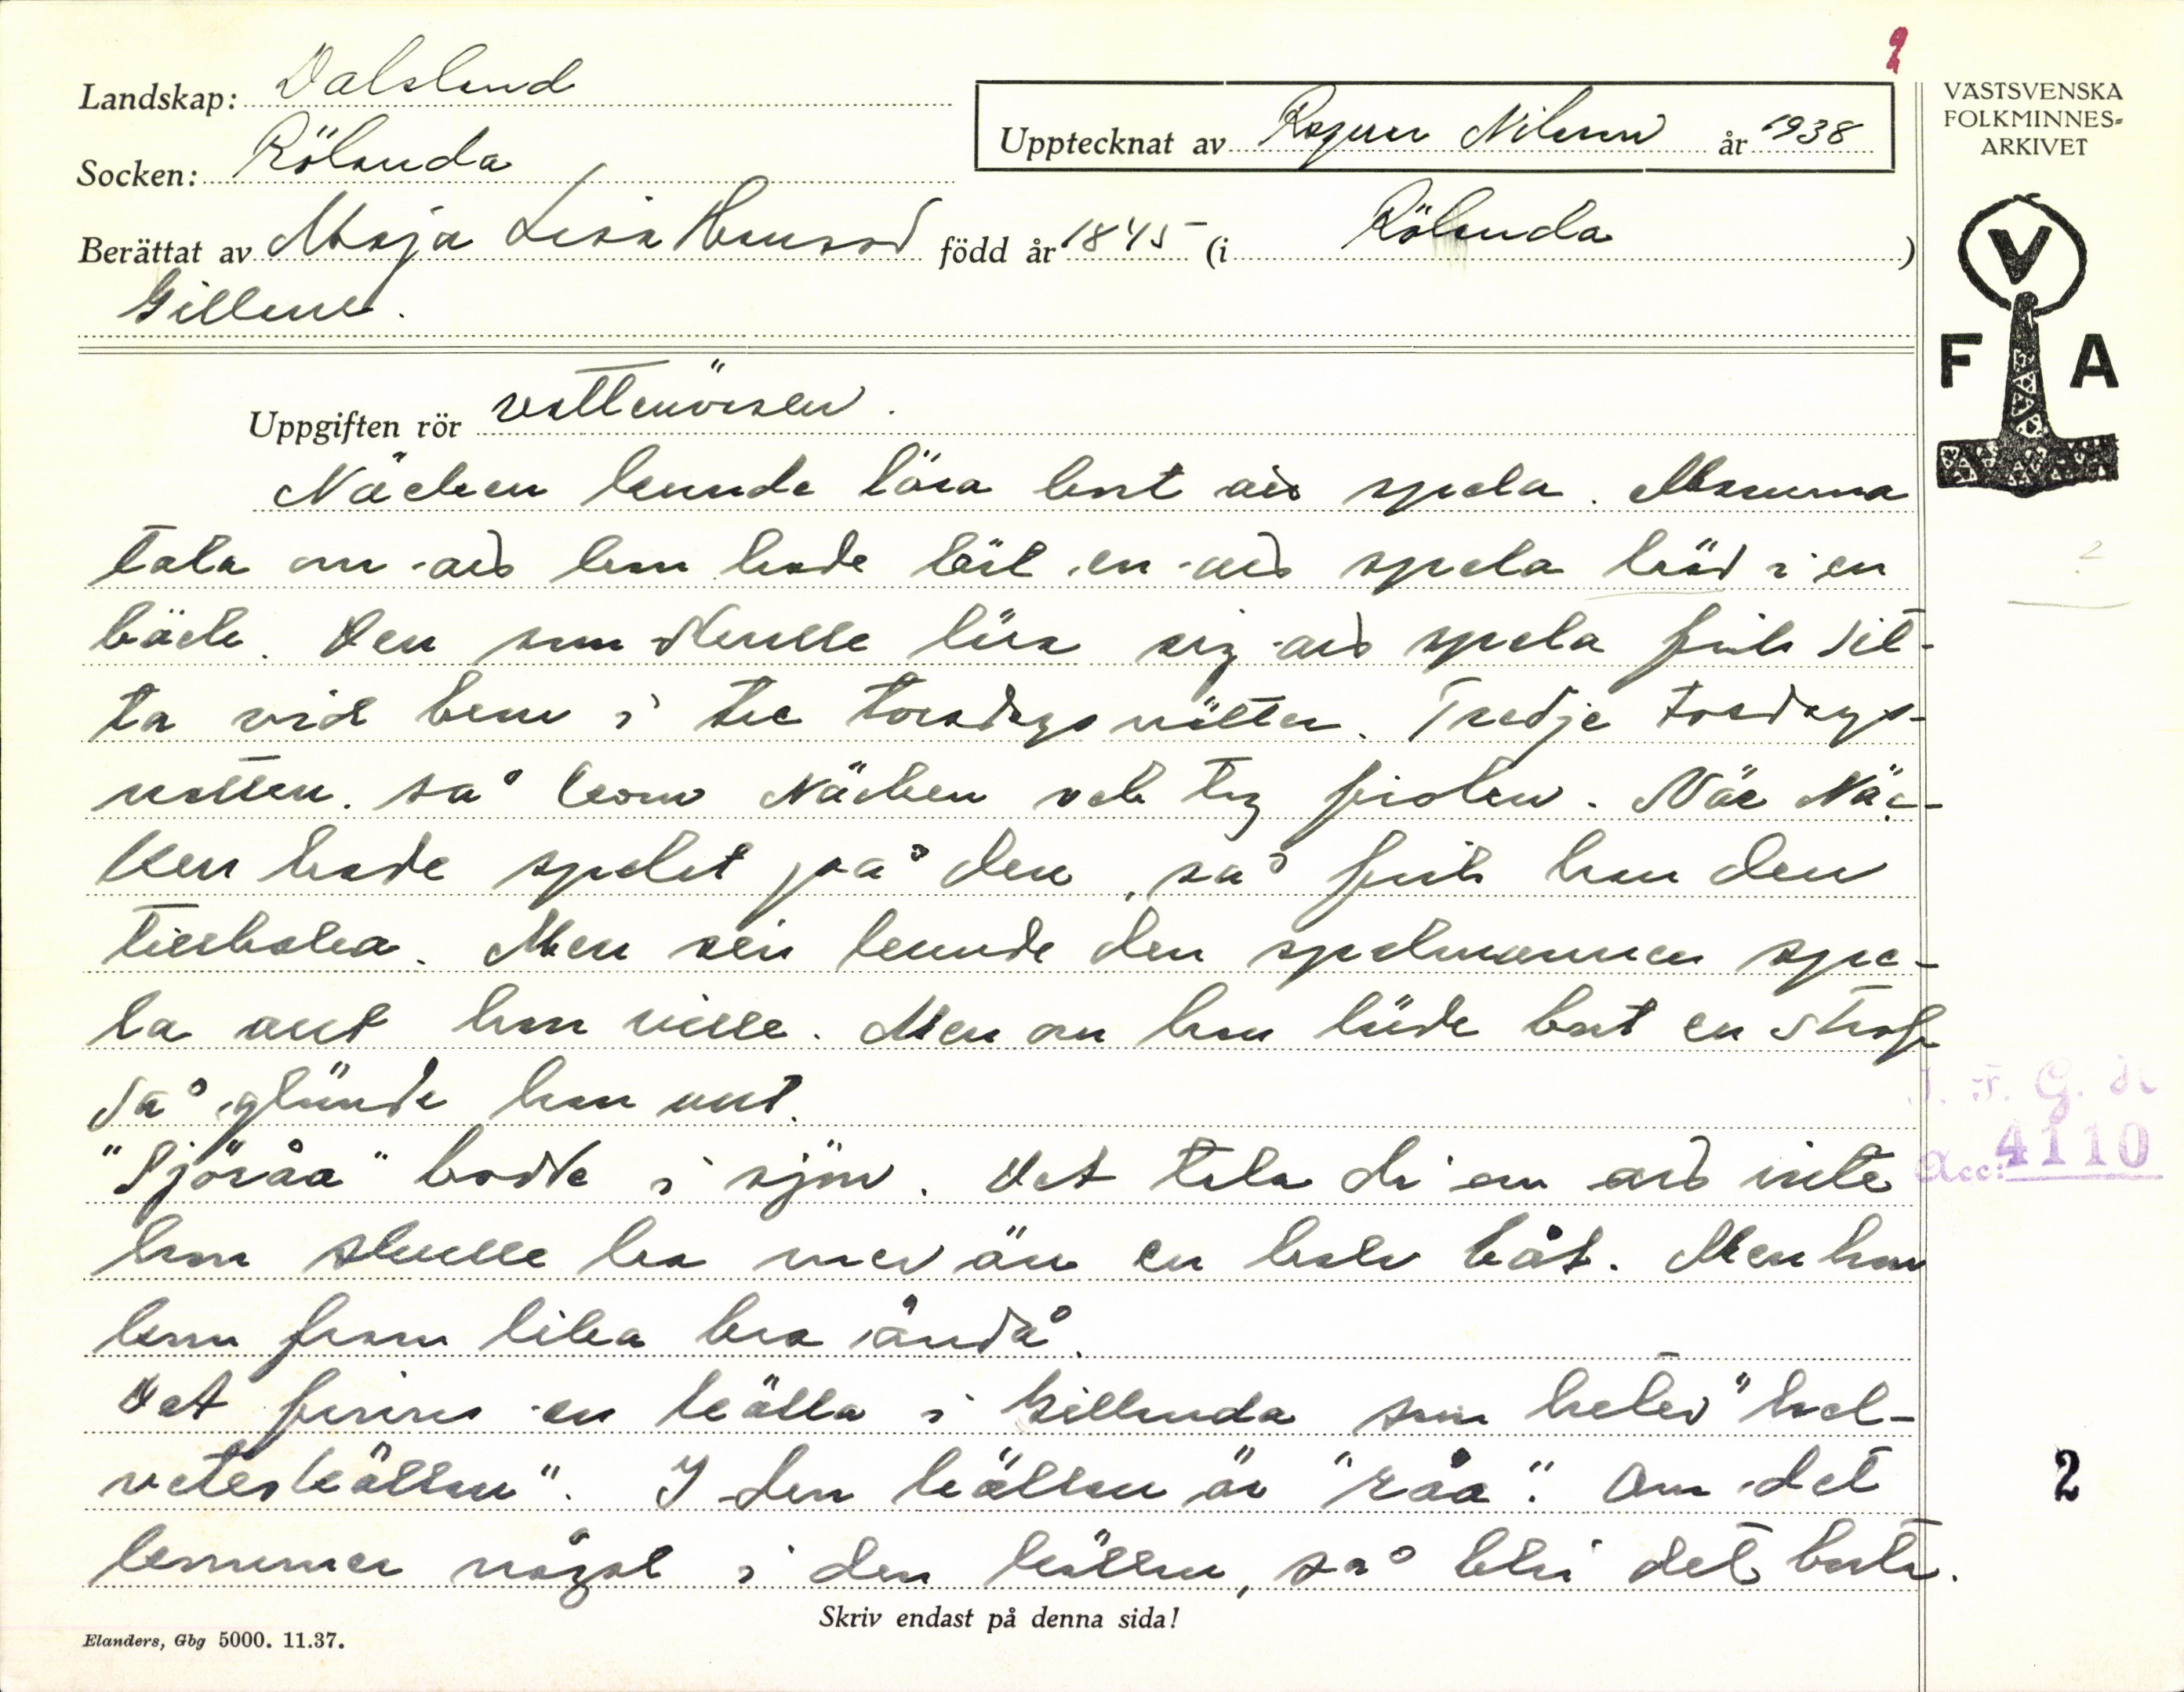 2
Landskap: Dalsland
Socken: Rölanda
Upptecknat av Ragnar Nilsson år 1938
Berättat av Maja Lisa Hansson född år 1845 (i Rölanda)
VÄSTSVENSKA
FOLKMINNES-
ARKIVET
V
F A
Uppgiften rör vattenväsen.
Näcken kunde lära bort att spela. Mamma
tala om att han hade lärt en att spela här i en
bäck. Den som skulle lära sig att spela fick sit-
ta vid bäcken i tre torsdagsnätter. Tredje torsdags-
natten så kom Näcken och tog fiolen. När Näc-
ken hade spelat på den, så fick han den
tillbaka. Men sen kunde den spelmannen spe-
la allt han ville. Men om han lärde bort en strof
så glömde han allt.
"Sjöråa" bodde i sjön. Det tala di om att inte
hon skulle ha mer än en halv båt. Men hon
kom fram lika bra ändå.
Det finns en källa i Gillanda som heter "hel-
veteskällan". I den källan är "råa". Om det
kommer något i den källan, så blir det borta.
J. F. G. dr
Acc: 4110
2
Skriv endast på denna sida!
Elanders, Gbg 5000. 11.37.